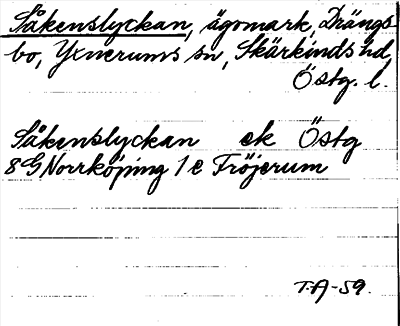 Såkenslyckan, ägomark, Drängs
bo, Yxnerums sn, Skärkinds hd,
Östg. l.
Såkenslyckan ek Östg
8G Norrköping 1e Fröjerum
T.A-59.